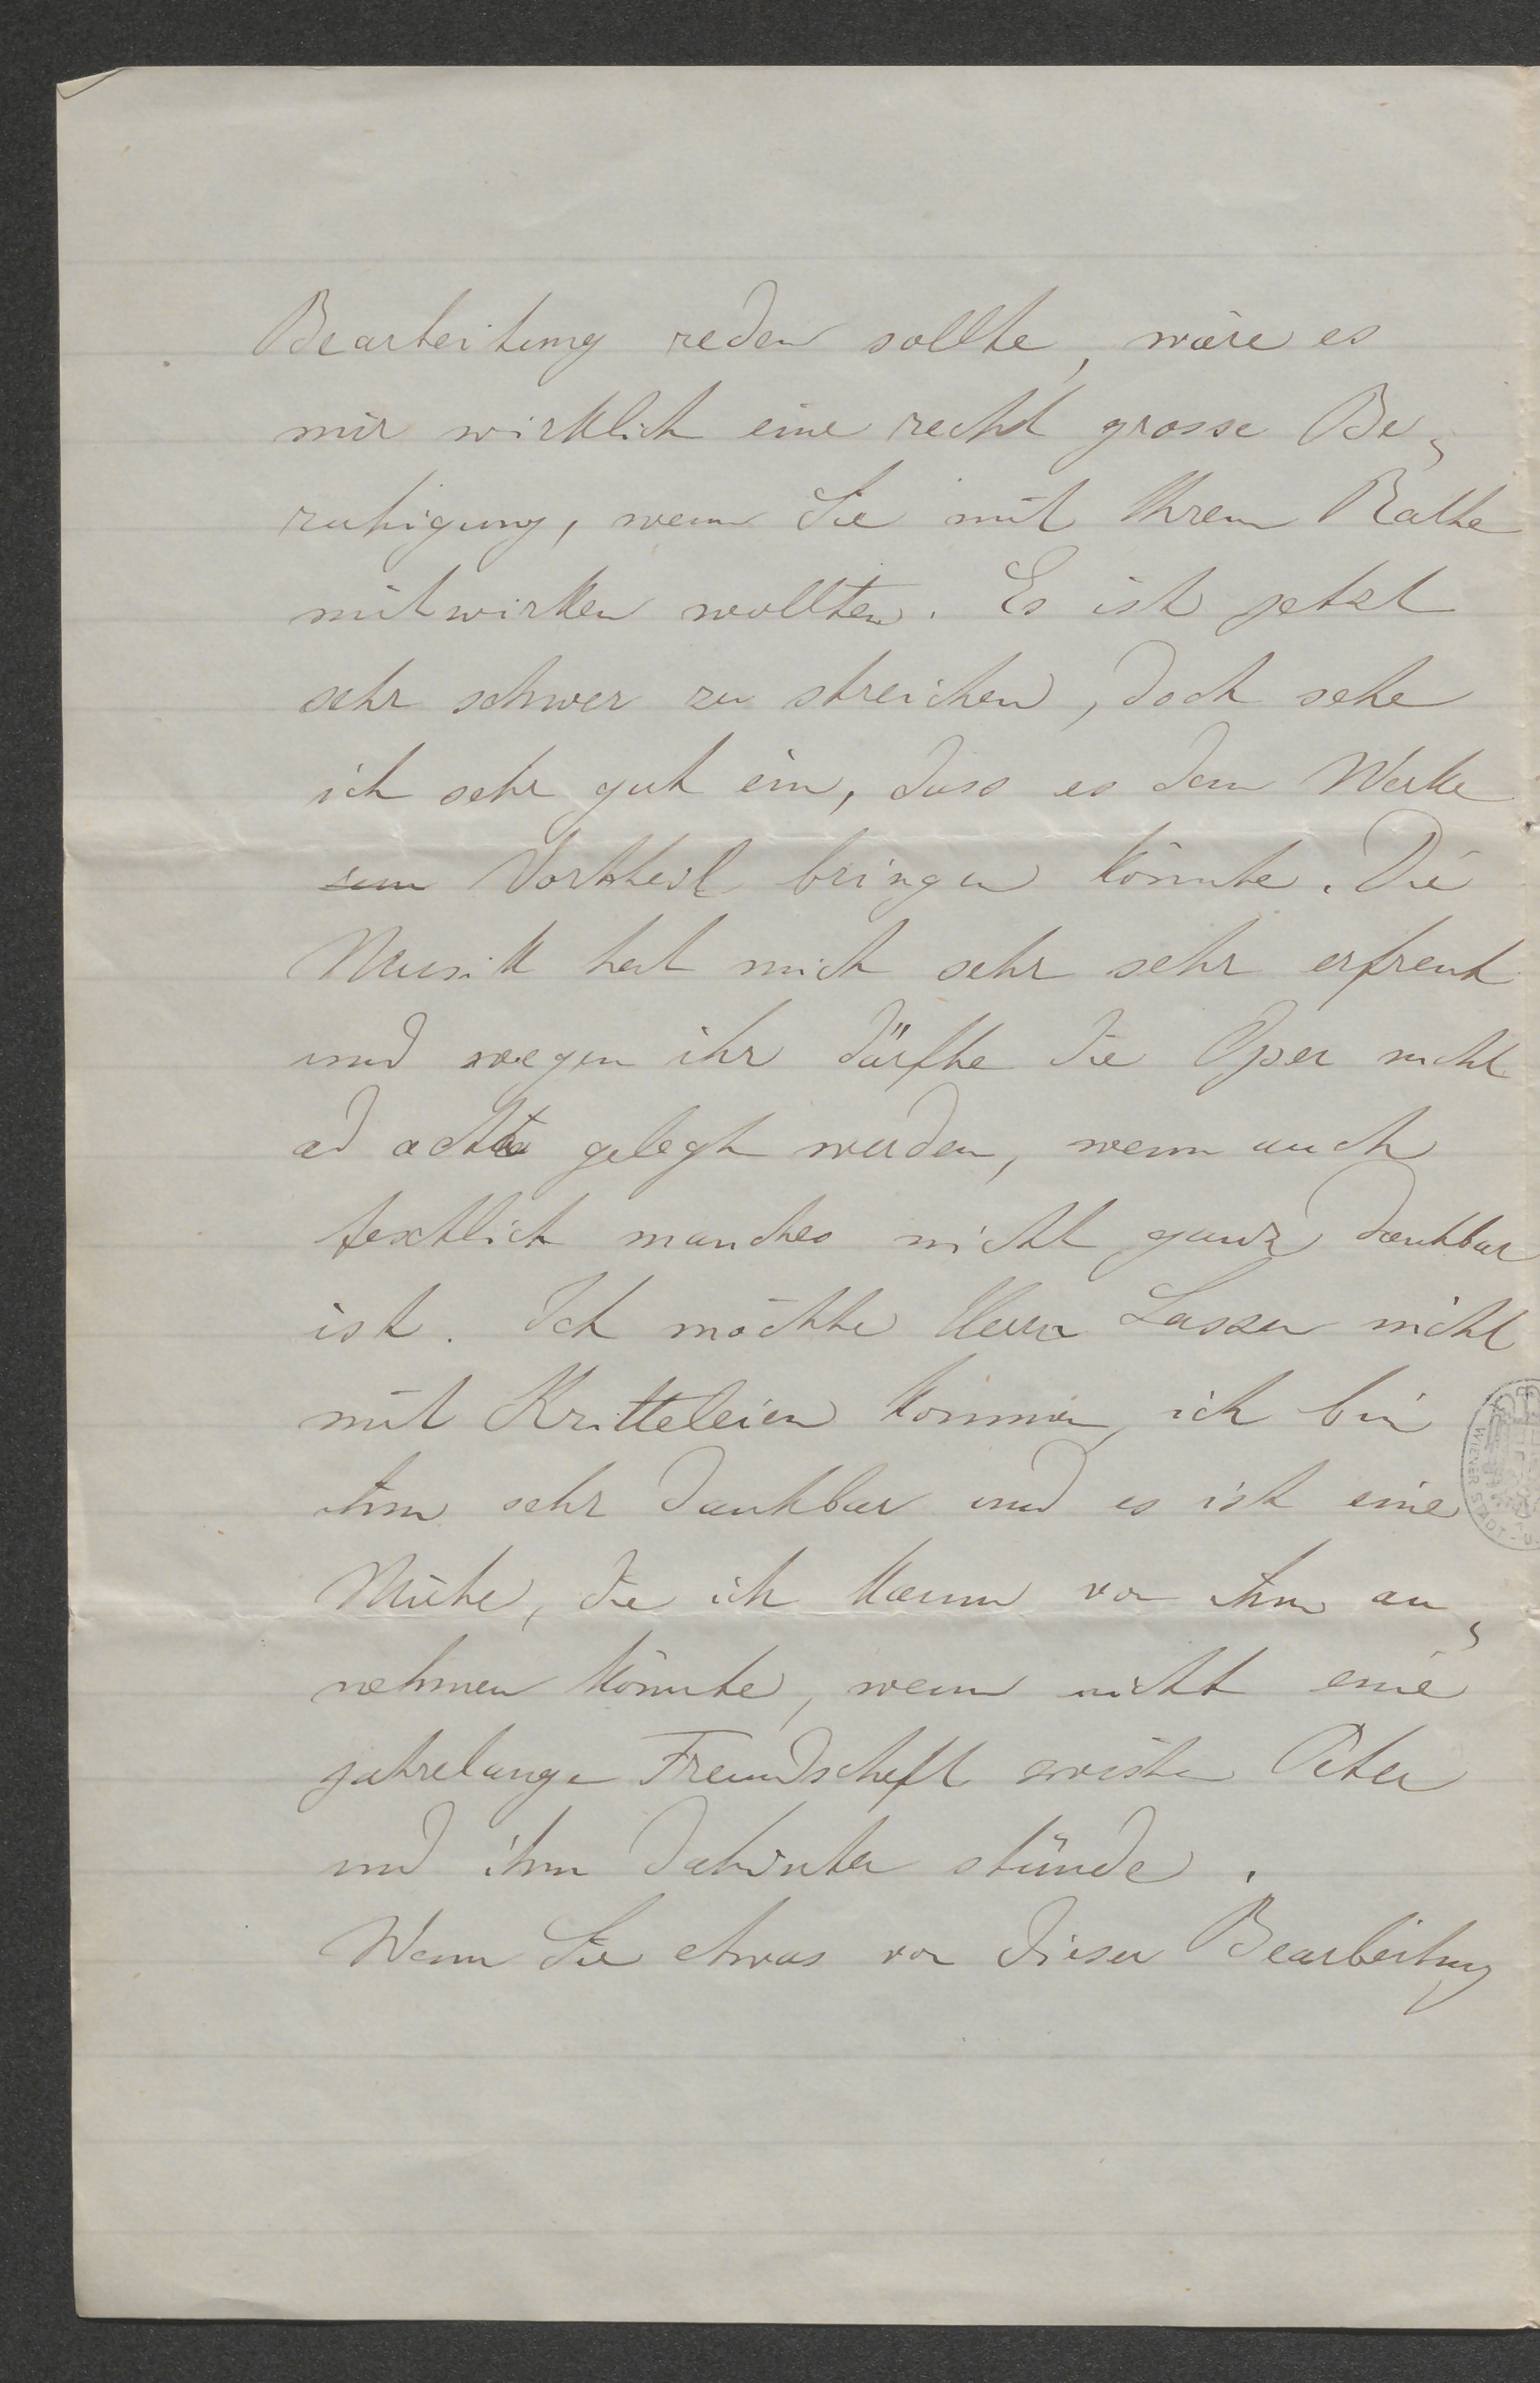 Bearbeitung reden sollte, wäre es
mir wirklich eine recht grosse Be-
ruhigung, wenn Sie mit Ihrem Rathe
mitwirken wollten. Es ist jetzt
sehr schwer zu streichen, doch sehe
ich sehr gut ein, dass es dem Werke
Vortheil bringen könnte. Die
Musik hat mich sehr sehr erfreut
und wegen ihr dürfte die Oper nicht
ad acta gelegt werden, wenn auch
textlich manches nicht ganz dankbar
ist. Ich möchte Herrn Lassen nicht
mit Kritteleien kommen, ich bin
ihm sehr dankbar und es ist eine
Mühe, die ich kaum von ihm an-
nehmen könnte, wenn nicht eine
jahrelange Freundschaft zwischen Peter
und ihm dahinter stünde.
Wenn Sie etwas von dieser Bearbeitung
WIENER STADT-U.